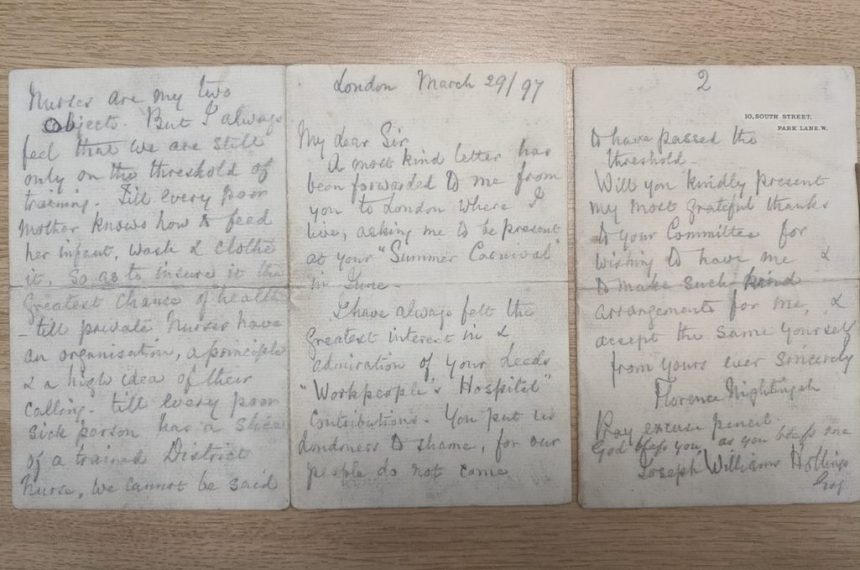 London March 29/97
My dear Sir
A most kind letter has
been forwarded to me from
you to London where I
live, asking me to be present
at your "Summer Carnival"
in June.
I have always felt the
greatest interest in &
admiration of your Leeds
"Workpeople's Hospital"
Contributions. You put us
Londoners to shame, for our
people do not come
Nurses are my two
objects. But I always
feel that we are still
only on the threshold of
training. Till every poor
Mother knows how to feed
her infant, wash & clothe
it, So as to insure it the
greatest chance of health
- till private Nurses have
an organisation, a principle
& a high idea of their
calling - till every poor
sick person has a share
of a trained District
Nurse, we cannot be said
2
10, SOUTH STREET,
PARK LANE. W.
to have passed the
threshold -
Will you kindly present
my most grateful thanks
to your Committee for
wishing to have me &
to make such kind
arrangements for me, &
accept the same yourself
from yours ever sincerely
Florence Nightingale
Pray excuse pencil.
God bless you, as you bless me
Joseph Williams Hollings
Esq